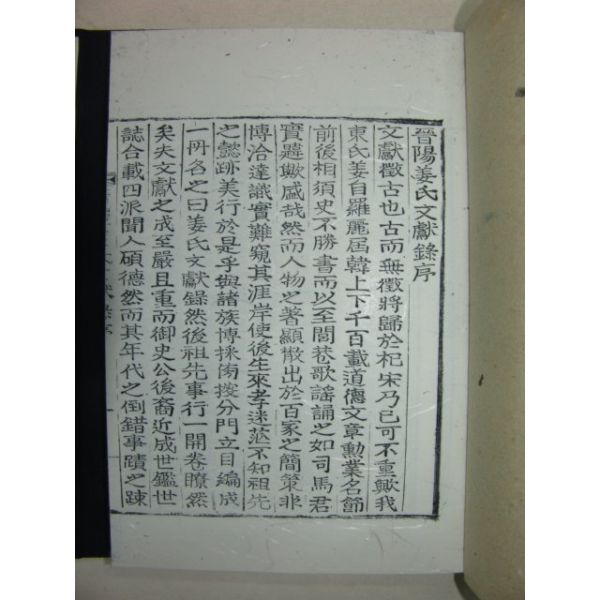 晉陽姜氏文獻錄序
文獻徵古也古而無徵將歸於杞宋乃已可不重歟我
東氏姜自羅麗届韓上下千百載道德文章勳業名節
前後相須史不勝書而以至閭巷歌謠誦之如司馬君
實韙歟盛哉然而人物之著顯散出於百家之簡策非
博洽達識實難窺其涯岸使後生來孝迷茫不知祖先
之懿跡美行於是乎與諸族博採衡搜分門立目編成
一册名之曰姜氏文獻錄然後祖先事行一開卷瞭然
矣夫文獻之成至嚴且重而御史公後裔近成世鑑世
誌合載四派聞人碩德然而其年代之倒錯事蹟之踈